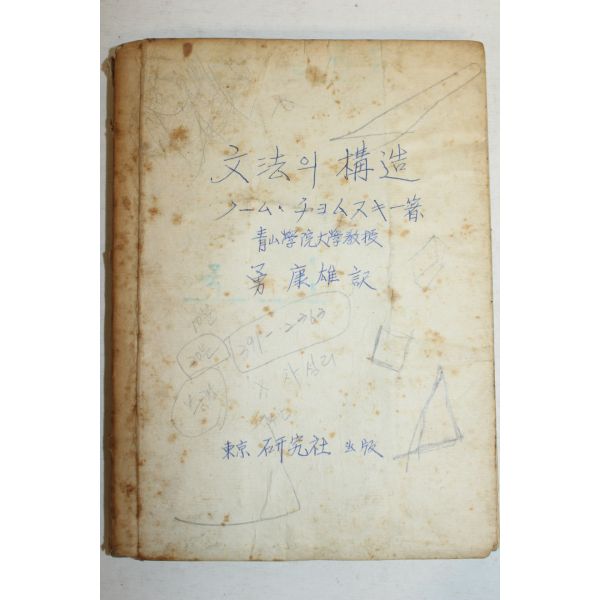 文法의 構造
ノーム・チョムスキー著
青山學院大學教授
勇 康雄 訳
391-2363
차상리
東京 研究社 出版